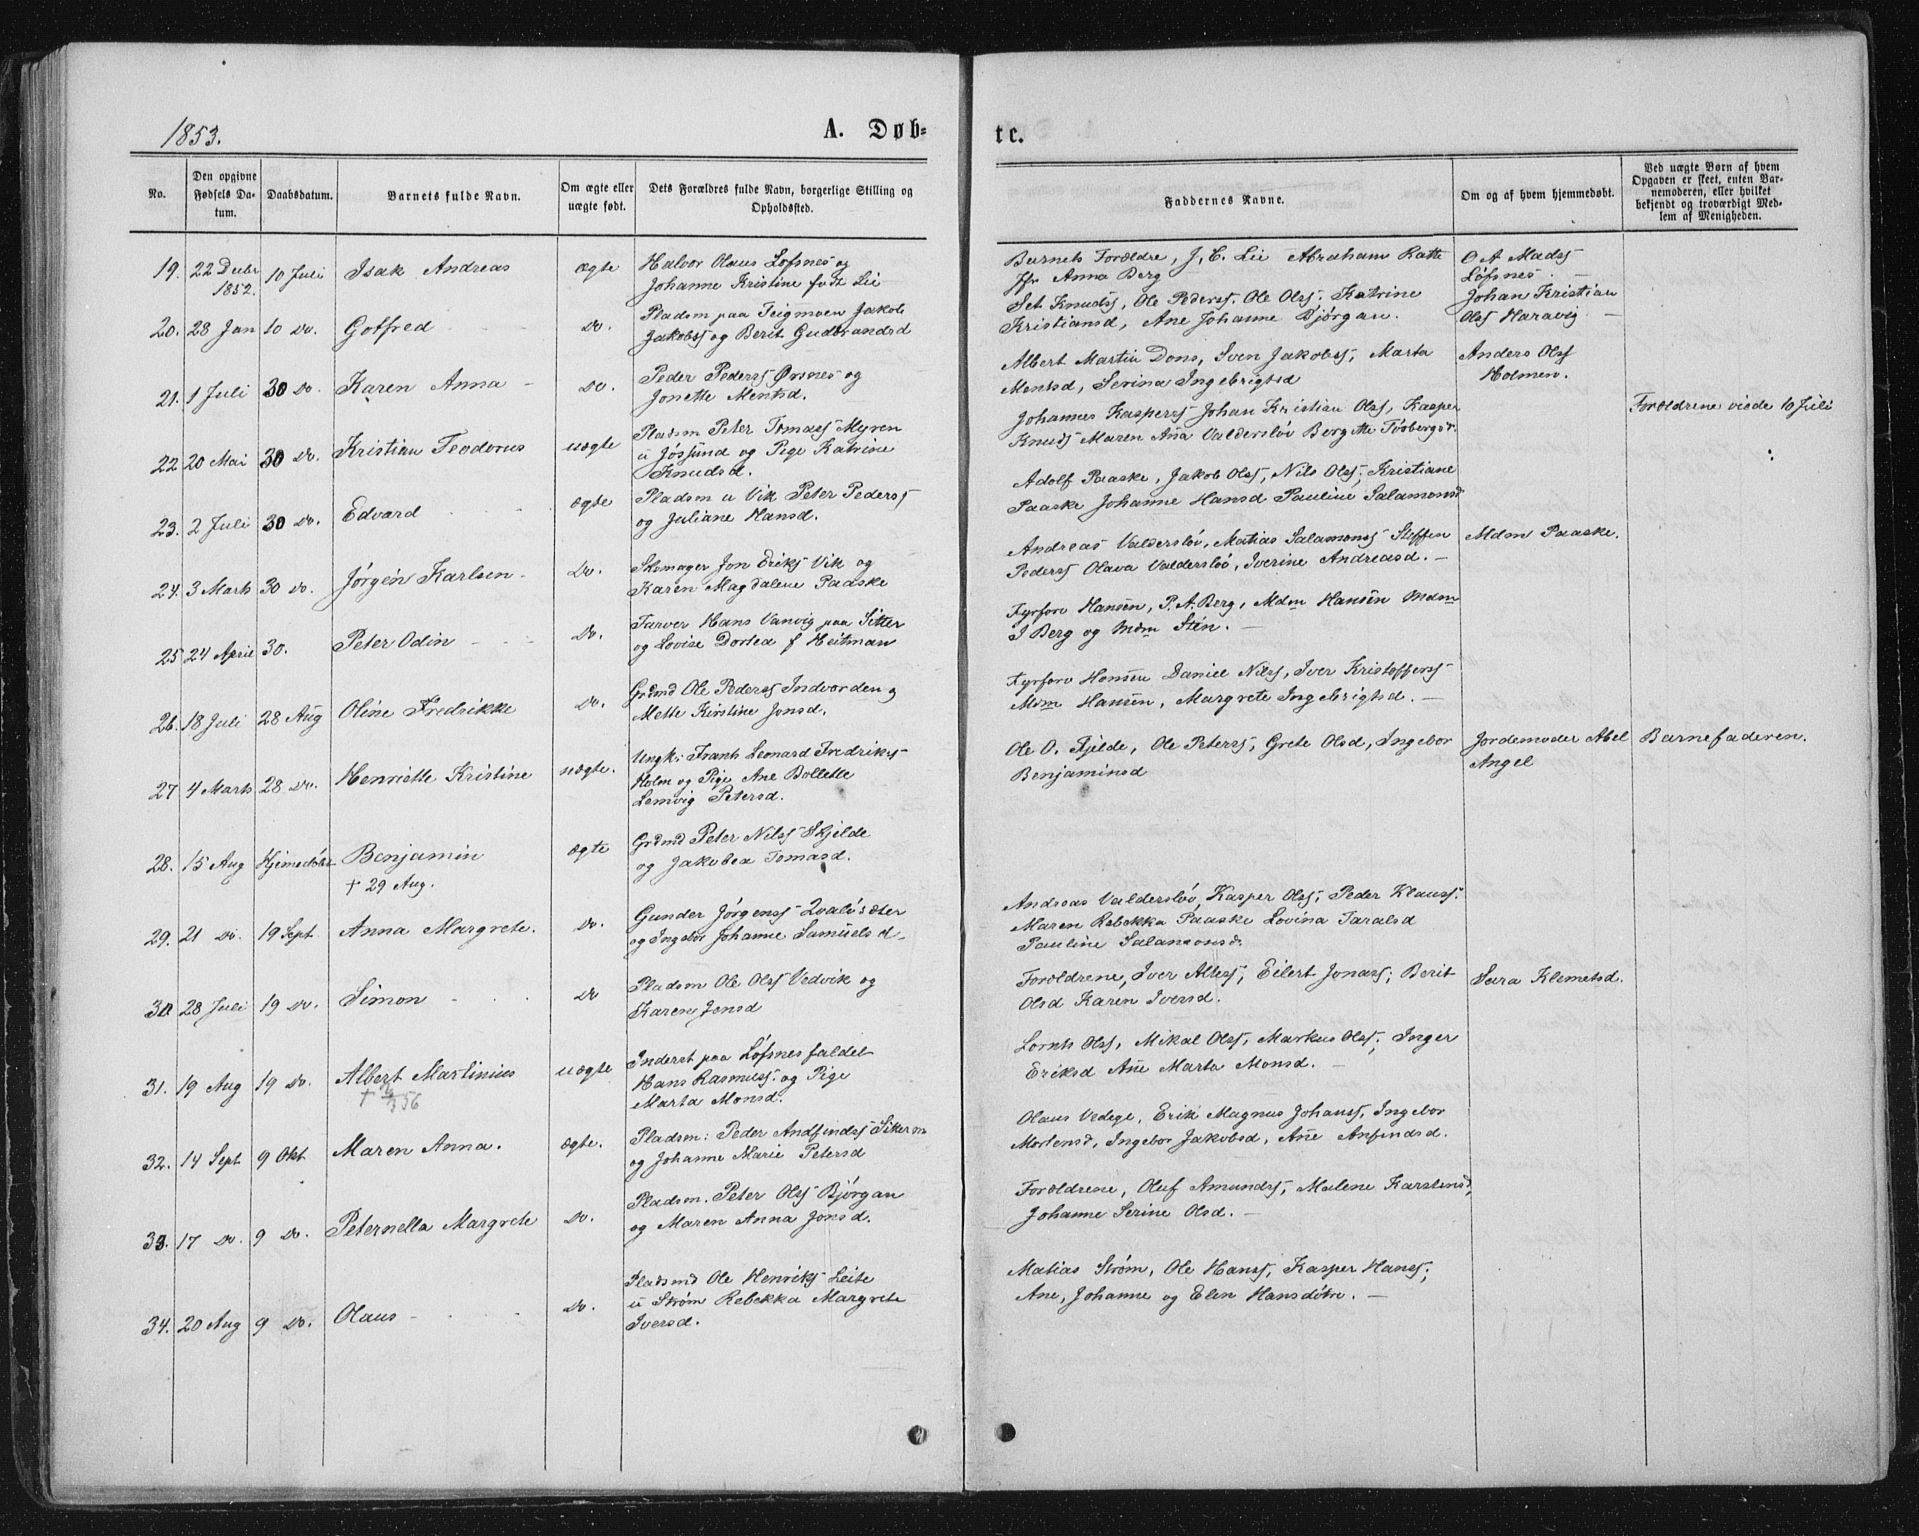 1853.
A. Døb-
te.
No.
Den opgivne Fødsels Da-tum.
Daabsdatum.
Barnets fulde Navn.
Om ægte eller uægte født.
Dets Forældres fulde Navn, borgerlige Stilling og Opholdssted.
Faddernes Navne.
Om og af hvem hjemmedøbt.
Ved uægte Børn af hvem Opgaven er skeet, enten Bar-nemoderen, eller hvilket bekjendt og troværdigt Med-lem af Menigheden.
19. 22 Decbr 1852. 10 Juli Isak Andreas ægte
Halvor Olaus Løfsnes og
Johanne Kristine født Lie
Barnets Forældre, J. C. Lie Abraham Ratte
Jfr Anna Berg
O A Madss
Løfsnes
20. 28 Jan 10 Do. Gotfred Do.
Pladsm paa Teigmoen Jakob
Jakobss og Berit Gudbrandsd
Set. Knudss, Ole Pederss. Ole Olss. Katrine
Kristiansd, Ane Johanne Bjørgan.
Johan Kristian
Olss Haravig
21. 1 Juli 30 Do. Karen Anna Do.
Peder Pederss Ørsnes og
Jonette Mentsd.
Albert Martin Dons, Sven Jakobss, Marta
Mentsd, Serina Ingebrigtsd
Anders Olss
Holmen.
22 20 Mai 30 Do. Kristian Teodorus uægte
Pladsm Peter Tomass Myren
u Jøssund og Pige Katrine
Knudsd.
Johannes Kasperss Johan Kristian Olss, Kasper
Knuds Maren Ana Valdersløv Bergitte Torbergsd.
Forældrene viede 10 Juli
23. 2 Juli 30 Do. Edvard ægte
Pladsm u Vik Peter Pederss
og Juliane Hansd.
Adolf Paaske, Jakob Olss, Nils Olss, Kristiane
Paaske Johanne Hansd Pauline Salamonsd
24. 3 Marts 30 Do. Jørgen Karlsen Do.
Skomager Jon Eriks Vik og
Karen Magdalene Paaske
Andreas Valdersløv, Matias Salamonss Steffen
Pederss Olava Valdersløv, Iverine Andreasd. –
Mdm Paaske.
25 24 April 30. Peter Odin Do.
Farver Hans Vanvig paa Sitter
og Lovise Dortea f Heitman
Fyrforv Hansen, P. A. Berg, Mdm Hansen Mdm
I Berg og Mdm Sten. –
26. 18 Juli 28 Aug Oline Fredrikke Do.
Grdmd Ole Pederss Indvorden og
Mette Kirstine Jonsd.
Fyrforv Hansen Daniel Nilss, Iver Kristofferss
Mdm Hansen, Margrete Ingebrigtsd. –
27 4 Marts 28 Do. Henriette Kristine uægte.
Ungk: Frants Leonard Fredriks
Holm og Pige Ane Bollette
Lemvig Petersd.
Ole O. Fjelde, Ole Peterss, Grete Olsd, Ingebor
Benjaminsd
Jordemoder Abel
Angel
Barnefaderen.
28. 15 Aug Hjemedøbt Benjamin ægte
† 29 Aug.
Grdmd Peter Nilss Skjelde
og Jakobea Tomasd.
29. 21 Do. 19 Sept. Anna Margrete. Do.
Gunder Jørgenss Qvaløsæter
og Ingebor Johanne Samuelsd
Andreas Valdersløv, Kasper Olss, Peder Klauss.
Maren Rebekka Paaske Lovina Taralsd
Pauline Salamonsd.
30. 28 Juli 19 Do. Simon Do
Pladsm Ole Olss Vedvik og
Karen Jensd
Forældrene, Iver Altess, Eilert Jonass; Berit
Olsd Karen Iversd.
Sara Klemetsd.
31. 19 Aug 19 Do. Albert Martinius uægte
Inderst paa Løfsnesfaldet
Hans Rasmuss. og Pige
Marta Monsd.
Lornts Olss, Mikal Olss, Markus Olss, Inger
Eriksd Ane Marta Monsd. –
32. 14 Sept 9 Okt Maren Anna. ægte.
Pladsm: Peder Andfindss
og Johanne Marie Petersd
Olaus Vedege, Erik Magnus Johanss, Ingebor
Mortensd, Ingebor Jakobsd, Ane Anfindsd.
33. 17 Do. 9 Do. Peternella Margrete Do.
Pladsm. Peter Olss Bjørgan
og Maren Anna Jonsd.
Forældrene, Oluf Amundss, Malene Karstensd,
Johanne Serine Olsd. –
34. 20 Aug 9 Do. Olaus Do.
Pladsmd Ole Henriks Leite
u Strøm Rebekka Margrete
Iversd.
Matias Strøm, Ole Hanss, Kasper Hanss,
Ane, Johanne og Elen Hansdøtre. –